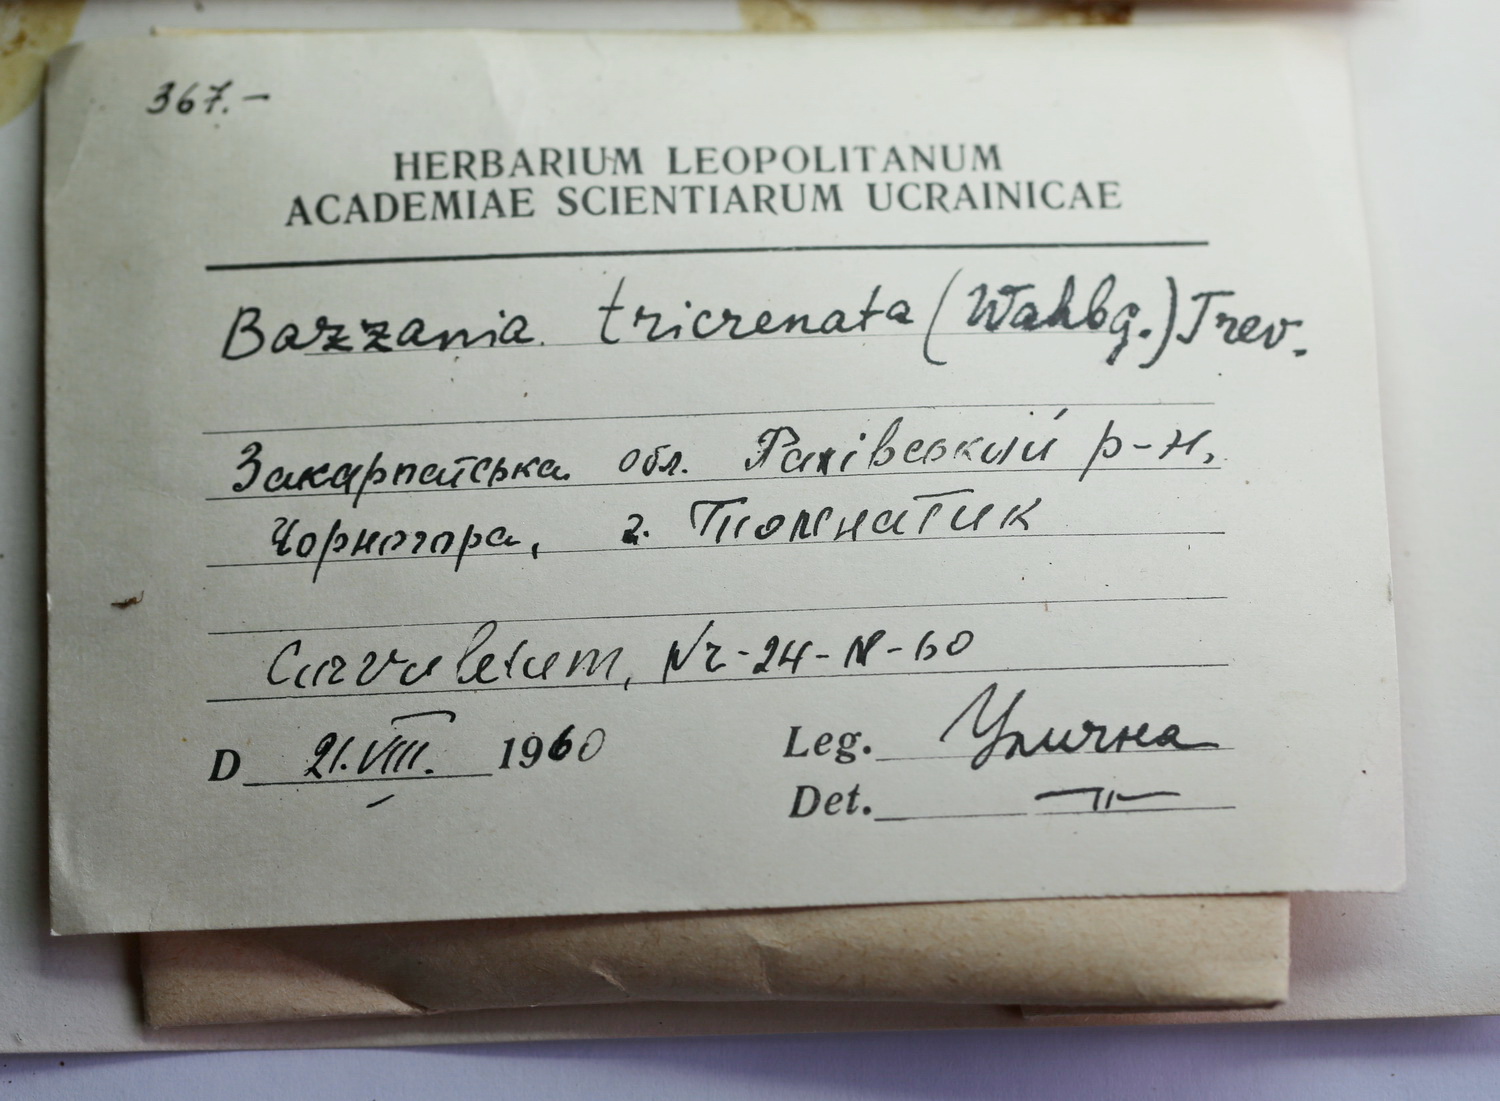 367.-
HERBARIUM LEOPOLITANUM
ACADEMIAE SCIENTIARUM UCRAINICAE
Bazzania tricrenata (Wahbg.) Trev.
Закарпатська обл. Рахівський р-н,
Чорногора, г. Томнатик
Curvuletum, Nr-24-N-60
D 21.VIII. 1960 Leg. Улична
Det. -"-